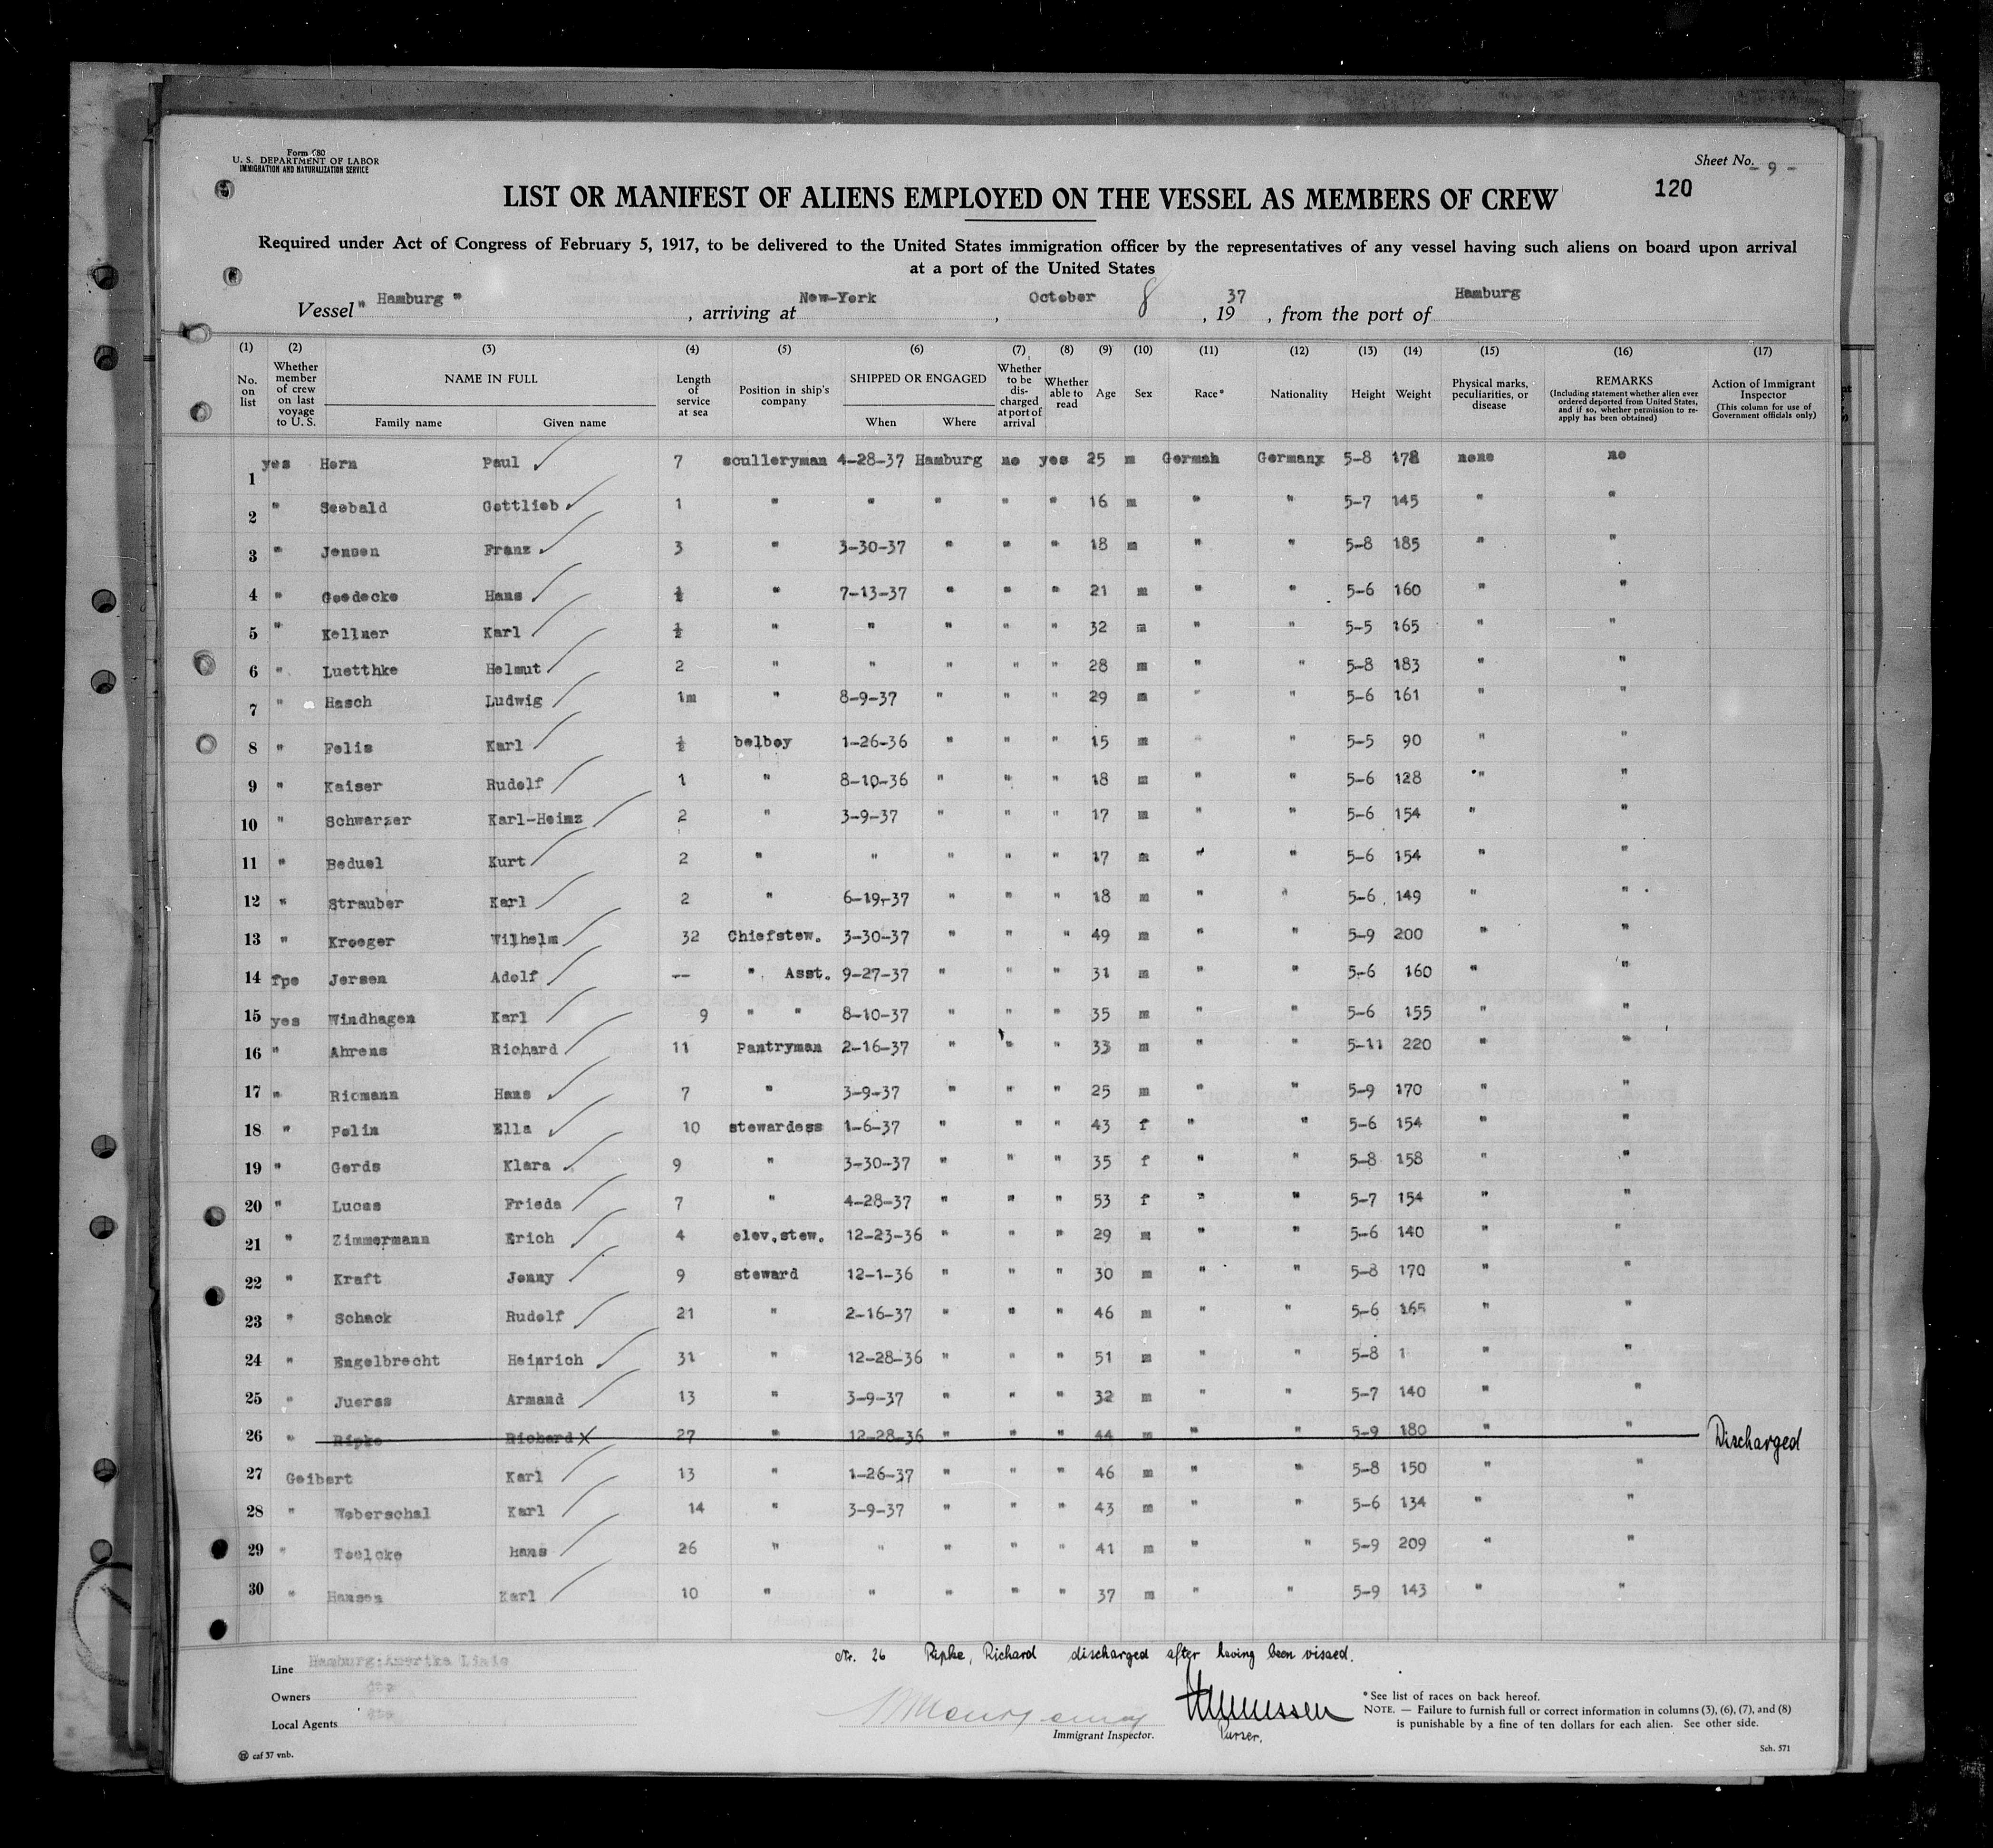 Form 680
U. S. DEPARTMENT OF LABOR
IMMIGRATION AND NATURALIZATION SERVICE
Sheet No. - 9 -
120
LIST OR MANIFEST OF ALIENS EMPLOYED ON THE VESSEL AS MEMBERS OF CREW
Required under Act of Congress of February 5, 1917, to be delivered to the United States immigration officer by the representatives of any vessel having such aliens on board upon arrival
at a port of the United States
Vessel " Hamburg ", arriving at New-York, October 8, 1937, from the port of Hamburg
(1) (2) (3) (4) (5) (6) (7) (8) (9) (10) (11) (12) (13) (14) (15) (16) (17)
No. on list
Whether member of crew on last voyage to U. S.
NAME IN FULL
Family name Given name
Length of service at sea
Position in ship's company
SHIPPED OR ENGAGED
When Where
Whether to be discharged at port of arrival
Whether able to read
Age
Sex
Race*
Nationality
Height
Weight
Physical marks, peculiarities, or disease
REMARKS
(Including statement whether alien ever ordered deported from United States, and if so, whether permission to re-apply has been obtained)
Action of Immigrant Inspector
(This column for use of Government officials only)
1 yes Horn Paul 7 sculleryman 4-28-37 Hamburg no yes 25 m German Germany 5-8 178 none no
2 " Seebald Gottlieb 1 " " " " " 16 m " " 5-7 145 " "
3 " Jensen Franz 3 " 3-30-37 " " " 18 m " " 5-8 185 " "
4 " Goedecke Hans ½ " 7-13-37 " " " 21 m " " 5-6 160 " "
5 " Kellner Karl ½ " " " " " 32 m " " 5-5 165 " "
6 " Luetthke Helmut 2 " " " " " 28 m " " 5-8 183 " "
7 " Hasch Ludwig 1m " 8-9-37 " " " 29 m " " 5-6 161 " "
8 " Felis Karl ½ belboy 1-26-36 " " " 15 m " " 5-5 90 " "
9 " Kaiser Rudolf 1 " 8-10-36 " " " 18 m " " 5-6 128 " "
10 " Schwarzer Karl-Heinz 2 " 3-9-37 " " " 17 m " " 5-6 154 " "
11 " Beduel Kurt 2 " " " " " 17 m " " 5-6 154 " "
12 " Strauber Karl 2 " 6-19-37 " " " 18 m " " 5-6 149 " "
13 " Kroeger Wilhelm 32 Chiefstew. 3-30-37 " " " 49 m " " 5-9 200 " "
14 fpe Jersen Adolf -- " Asst. 9-27-37 " " " 31 m " " 5-6 160 " "
15 yes Windhagen Karl 9 " " 8-10-37 " " " 35 m " " 5-6 155 " "
16 " Ahrens Richard 11 Pantryman 2-16-37 " " " 33 m " " 5-11 220 " "
17 " Riomann Hans 7 " 3-9-37 " " " 25 m " " 5-9 170 " "
18 " Polin Ella 10 stewardess 1-6-37 " " " 43 f " " 5-6 154 " "
19 " Gerds Klara 9 " 3-30-37 " " " 35 f " " 5-8 158 " "
20 " Lucas Frieda 7 " 4-28-37 " " " 53 f " " 5-7 154 " "
21 " Zimmermann Erich 4 elev.stew. 12-23-36 " " " 29 m " " 5-6 140 " "
22 " Kraft Jonny 9 steward 12-1-36 " " " 30 m " " 5-8 170 " "
23 " Schack Rudolf 21 " 2-16-37 " " " 46 m " " 5-6 165 " "
24 " Engelbrecht Heinrich 31 " 12-28-36 " " " 51 m " " 5-8 1 " "
25 " Juerss Armand 13 " 3-9-37 " " " 32 m " " 5-7 140 " "
26 " Ripke Richard X 27 " 12-28-36 " " " 44 m " " 5-9 180 " " Discharged
27 Geibert Karl 13 " 1-26-37 " " " 46 m " " 5-8 150 " "
28 " Weberschal Karl 14 " 3-9-37 " " " 43 m " " 5-6 134 " "
29 " Toelcke Hans 26 " " " " " 41 m " " 5-9 209 " "
30 " Hansen Karl 10 " " " " " 37 m " " 5-9 143 " "
Nr. 26 Ripke, Richard discharged after having been vissed.
Line Hamburg-Amerika Linie
Owners
Local Agents
Immigrant Inspector.
Purser.
* See list of races on back hereof.
NOTE. — Failure to furnish full or correct information in columns (3), (6), (7), and (8)
is punishable by a fine of ten dollars for each alien. See other side.
caf 37 vnb.
Sch. 571